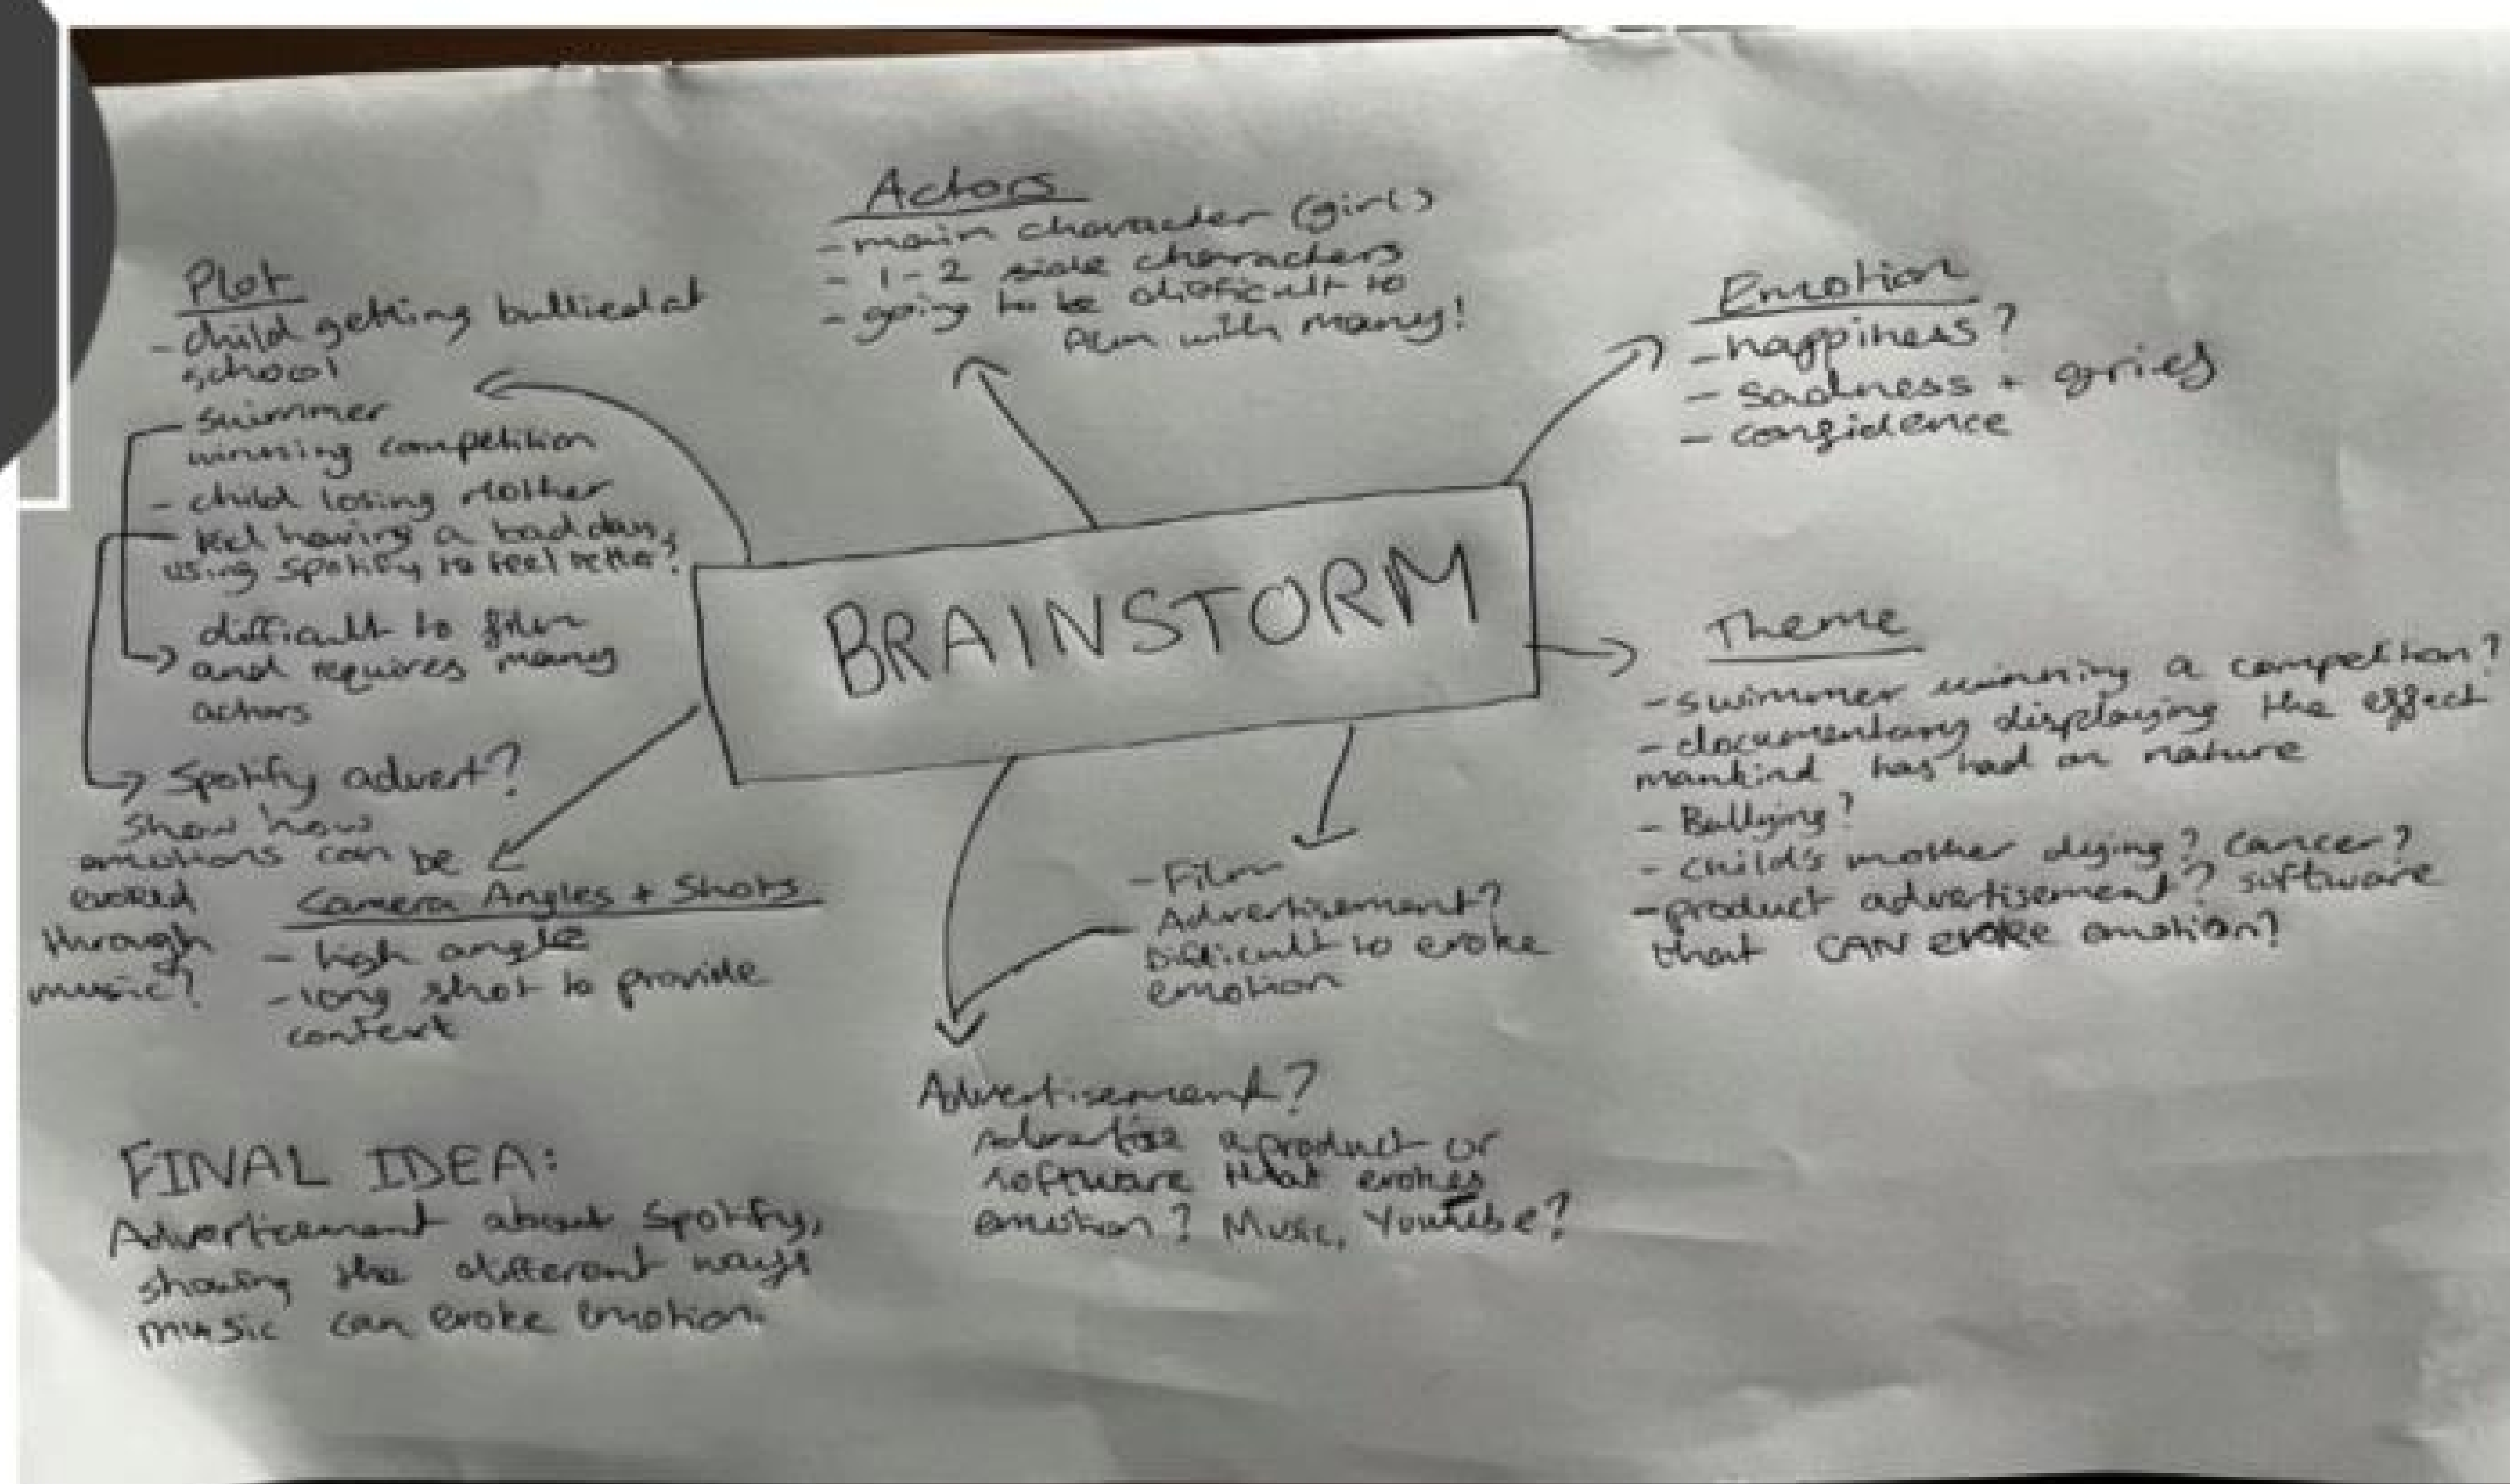 Plot
- child getting bullied at
school
- swimmer
winning competition
- child losing mother
- kid having a bad day,
using spotify to feel better?
difficult to film
and requires many
actors
Spotify advert?
show how
emotions can be
evoked
through
music?
Actors
- main character (girl)
- 1-2 side characters
- going to be difficult to
film with many!
Emotion
- happiness?
- sadness + grief
- confidence
BRAINSTORM
Theme
- swimmer winning a competition?
- documentary displaying the effect
mankind has had on nature
- Bullying?
- child's mother dying? cancer?
- product advertisement? software
that CAN evoke emotion?
Camera Angles + Shots
- high angle
- long shot to provide
context
- Film
Advertisement?
Difficult to evoke
emotion
Advertisement?
advertise a product or
software that evokes
emotion? Music, Youtube?
FINAL IDEA:
Advertisement about Spotify,
showing the different ways
music can evoke emotion.